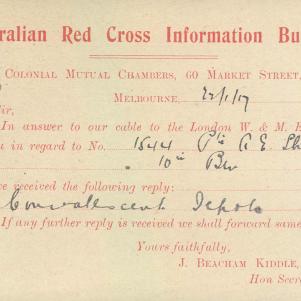 ralian Red Cross Information Bu
Colonial Mutual Chambers, 60 Market Street,
Melbourne, 22/1/17
ir,
In answer to our cable to the London W. & M. E
u in regard to No. 1544 Pte A E
10th Bn
e received the following reply:
Convalescent Depots
If any further reply is received we shall forward same
Yours faithfully,
J. Beacham Kiddle,
Hon Secre